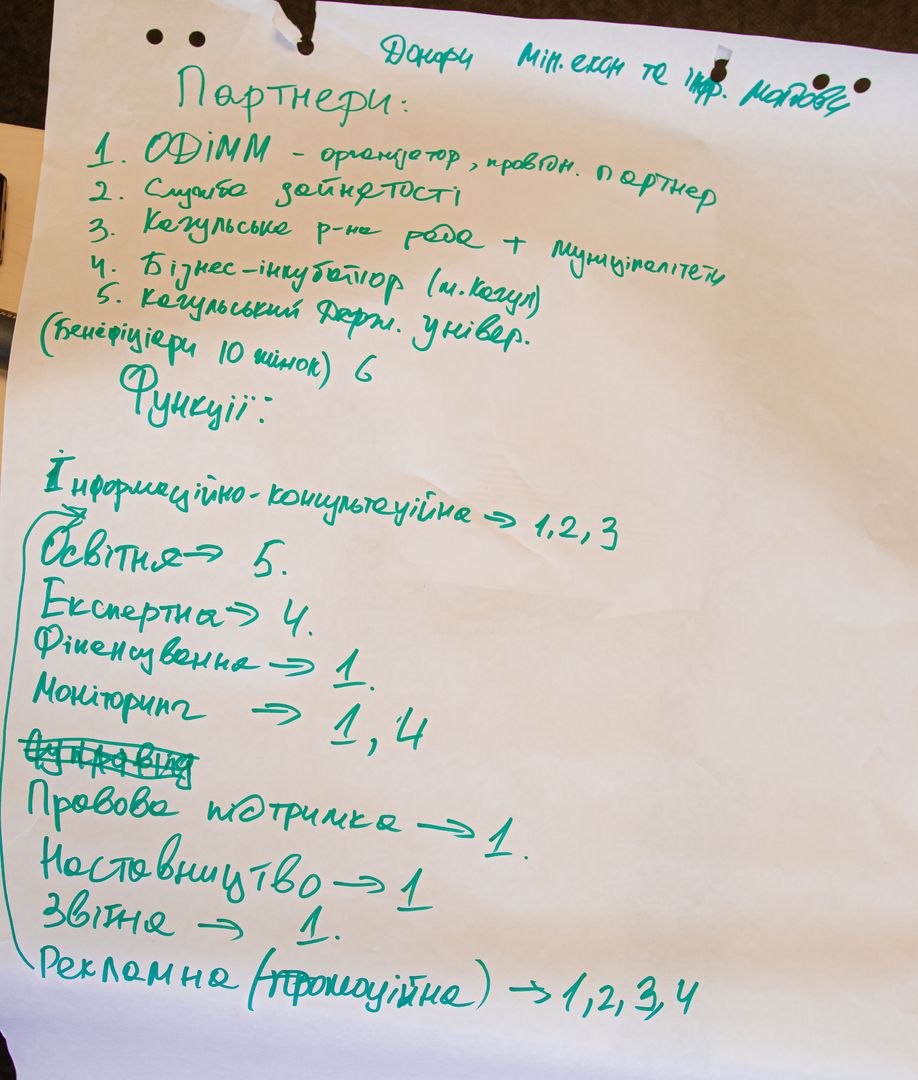 Донори Мін. екон та інфр. Молдови
Партнери:
1. ОДІММ - організатор, провідн. партнер
2. Служба зайнятості
3. Кагульська р-на рада + муніципалітети
4. Бізнес-інкубатор (м. Кагул)
5. Кагульський Держ. універ.
(Бенефіціари 10 жінок) 6
Функції:
Інформаційно-консультаційна ⇒ 1,2,3
Освітня ⇒ 5.
Експертна ⇒ 4.
Фінансування ⇒ 1.
Моніторинг ⇒ 1, 4
Правова підтримка → 1.
Наставництво → 1
Звітна → 1.
Рекламна (промоційна) → 1,2,3,4